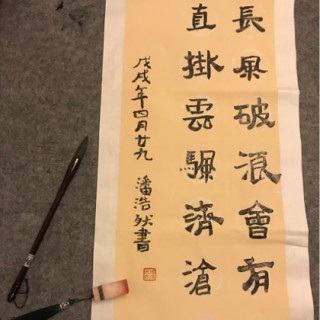 長風破浪會有
直掛雲颿濟滄
戊戌年四月廿九 潘浩然書